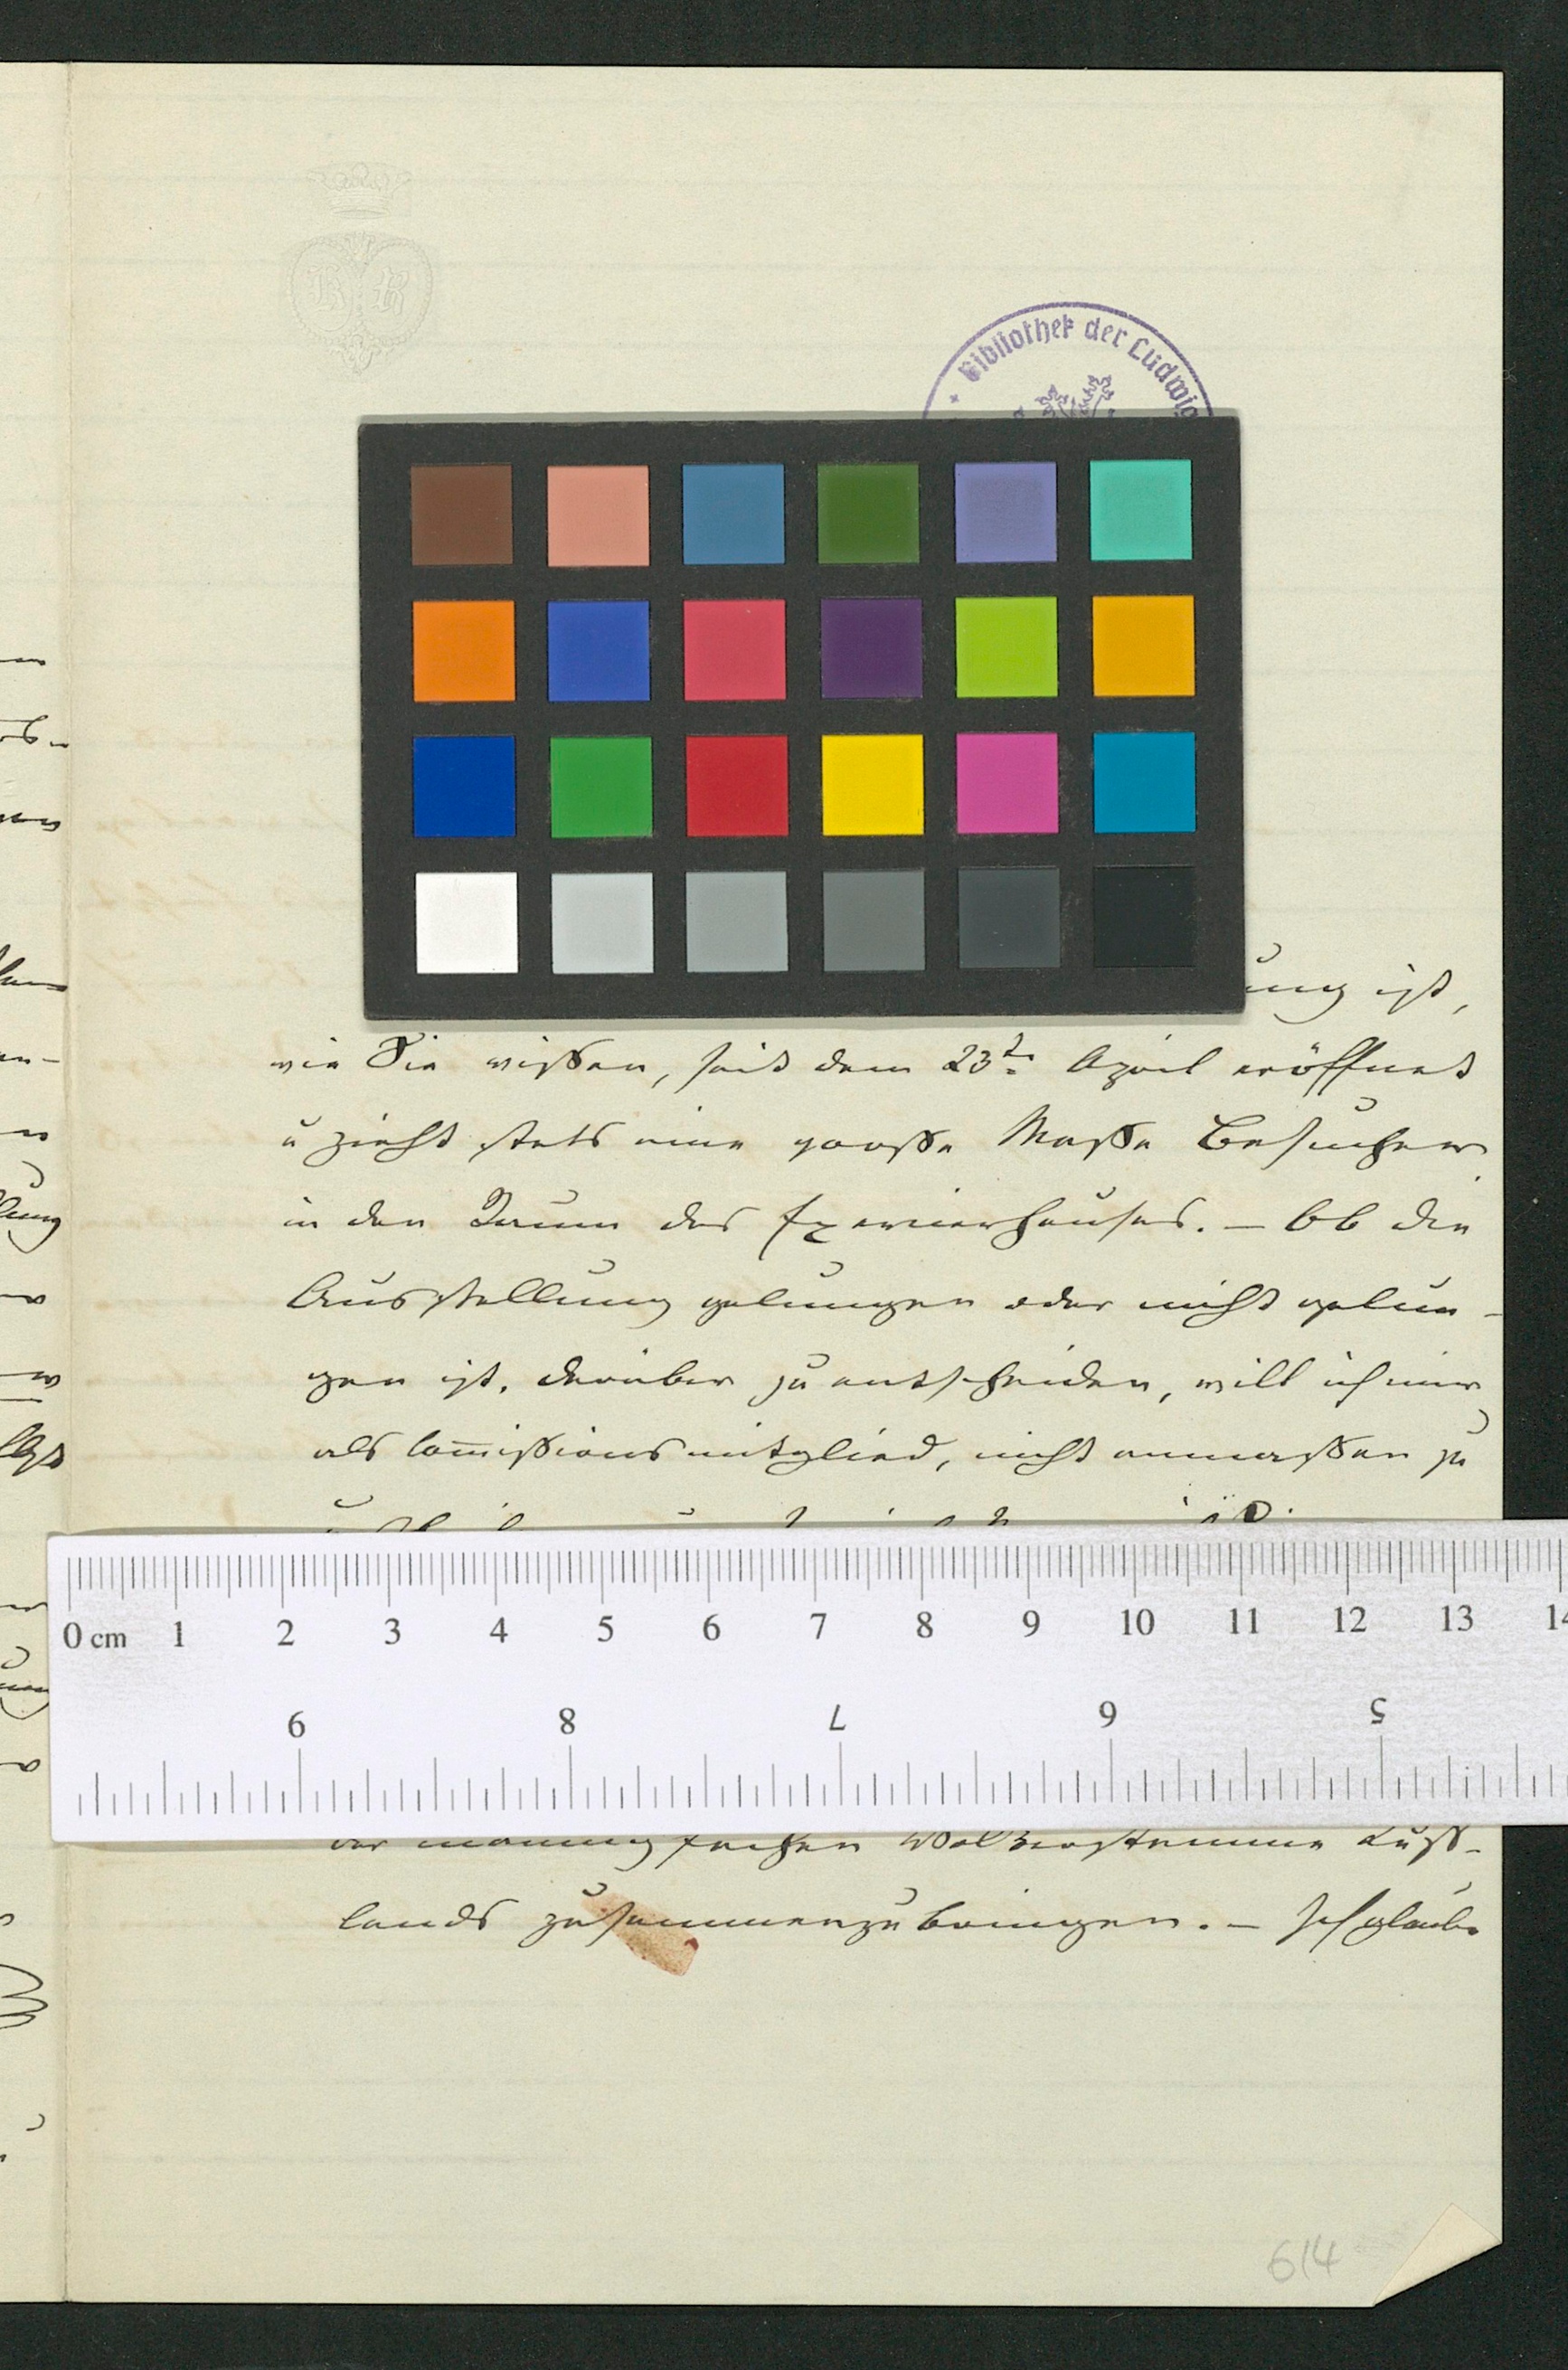 Bibliothek der Ludwig
ung ist,
wie Sie wißen, seit dem 23t. April eröffnet
u zieht stets eine große Maße Besucher
in den Raum des Exercierhauses. – Ob die
Ausstellung gelungen oder nicht gelun-
gen ist, darüber zu entscheiden, will ich mir
als Com̅ißionsmitglied, nicht anmaßen zu
0 cm 1 2 3 4 5 6 7 8 9 10 11 12 13 14
9 8 7 6 5
der mannigfachen Volkerstamme Ruß-
lands zusammenzubringen. – Ich glaube
614